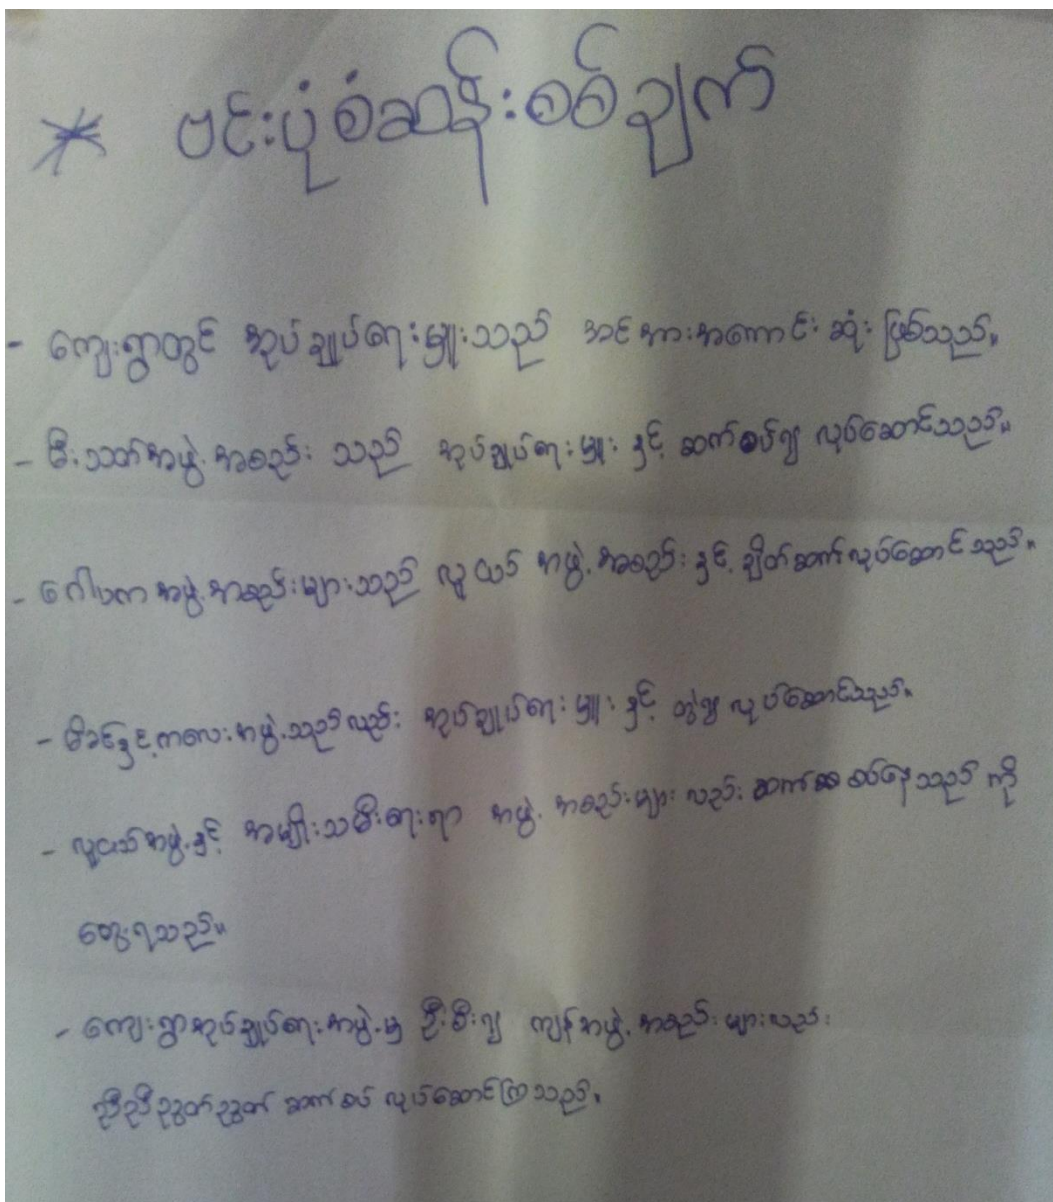 * ဗင်းပုံစံဆန်းစစ်ချက်
- ကျေးရွာတွင် အုပ်ချုပ်ရေးမှူးသည် အင်အားအကောင်းဆုံး ဖြစ်သည်။
- မီးသတ်အဖွဲ့အစည်း သည် အုပ်ချုပ်ရေးမှူး နှင့် ဆက်စပ်၍ လုပ်ဆောင်သည်။
- ဂေါပကအဖွဲ့အစည်းများသည် လူငယ် အဖွဲ့အစည်း နှင့် ချိတ်ဆက်လုပ်ဆောင်သည်။
- မိခင်နှင့်ကလေးအဖွဲ့သည်လည်း အုပ်ချုပ်ရေးမှူး နှင့် တွဲ၍ လုပ်ဆောင်သည်။
- လူငယ်အဖွဲ့နှင့် အမျိုးသမီးရေးရာ အဖွဲ့အစည်းများ လည်း ဆက်စပ်နေသည် ကို
တွေ့ရသည်။
- ကျေးရွာအုပ်ချုပ်ရေးအဖွဲ့မှ ဦးစီး၍ ကျန်အဖွဲ့အစည်းများလည်း
ညီညီညွတ်ညွတ် ဆက်စပ် လုပ်ဆောင်ကြသည်။